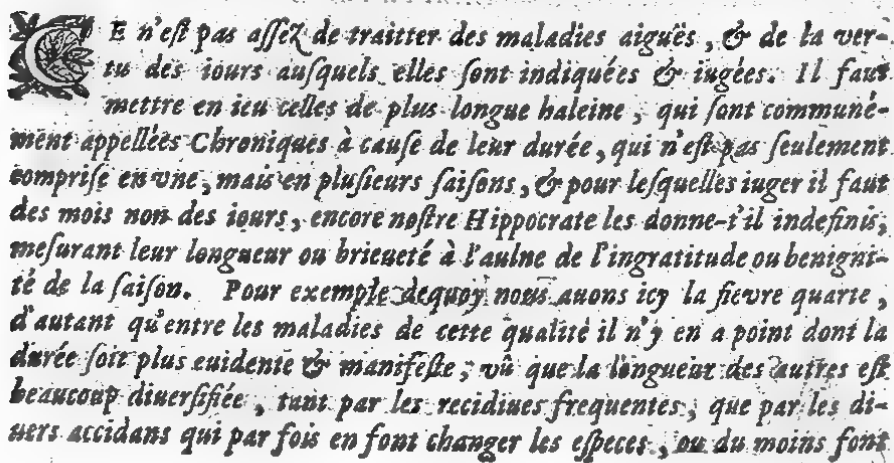 CE n'eſt pas aſſez de traitter des maladies aiguës, & de la ver-
tu des iours auſquels elles ſont indiquées & iugées. Il faut
mettre en ieu celles de plus longue haleine, qui ſont communé-
ment appellées Chroniques à cauſe de leur durée, qui n'eſt pas ſeulement
compriſe en vne, mais en pluſieurs ſaiſons, & pour leſquelles iuger il faut
des mois non des iours, encore noſtre Hippocrate les donne-t'il indefinis,
meſurant leur longueur ou brieueté à l'aulne de l'ingratitude ou benigni-
té de la ſaiſon. Pour exemple dequoy nous auons icy la fievre quarte,
d'autant qu'entre les maladies de cette qualité il n'y en a point dont la
durée ſoit plus euidente & manifeſte, vû que la longueur des autres eſt
beaucoup diuerſifiée, tant par les recidiues frequentes, que par les di-
uers accidans qui par fois en font changer les eſpeces, ou du moins font